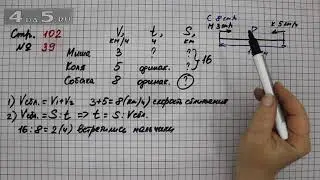 4 на 5.ru
Стр. 102
№ 39
V, км/ч t, ч S, км
Миша 3 ? ?
Коля 5 одинак. ? 16
Собака 8 одинак. ?
С 8 км/ч
М 3 км/ч К 5 км/ч
1) Vсбл. = V1+V2 3+5=8(км/ч) скорость сближения
2) Vсбл. = S : t ⇒ t = S : Vсбл.
16 : 8 = 2 (ч) встретились мальчики